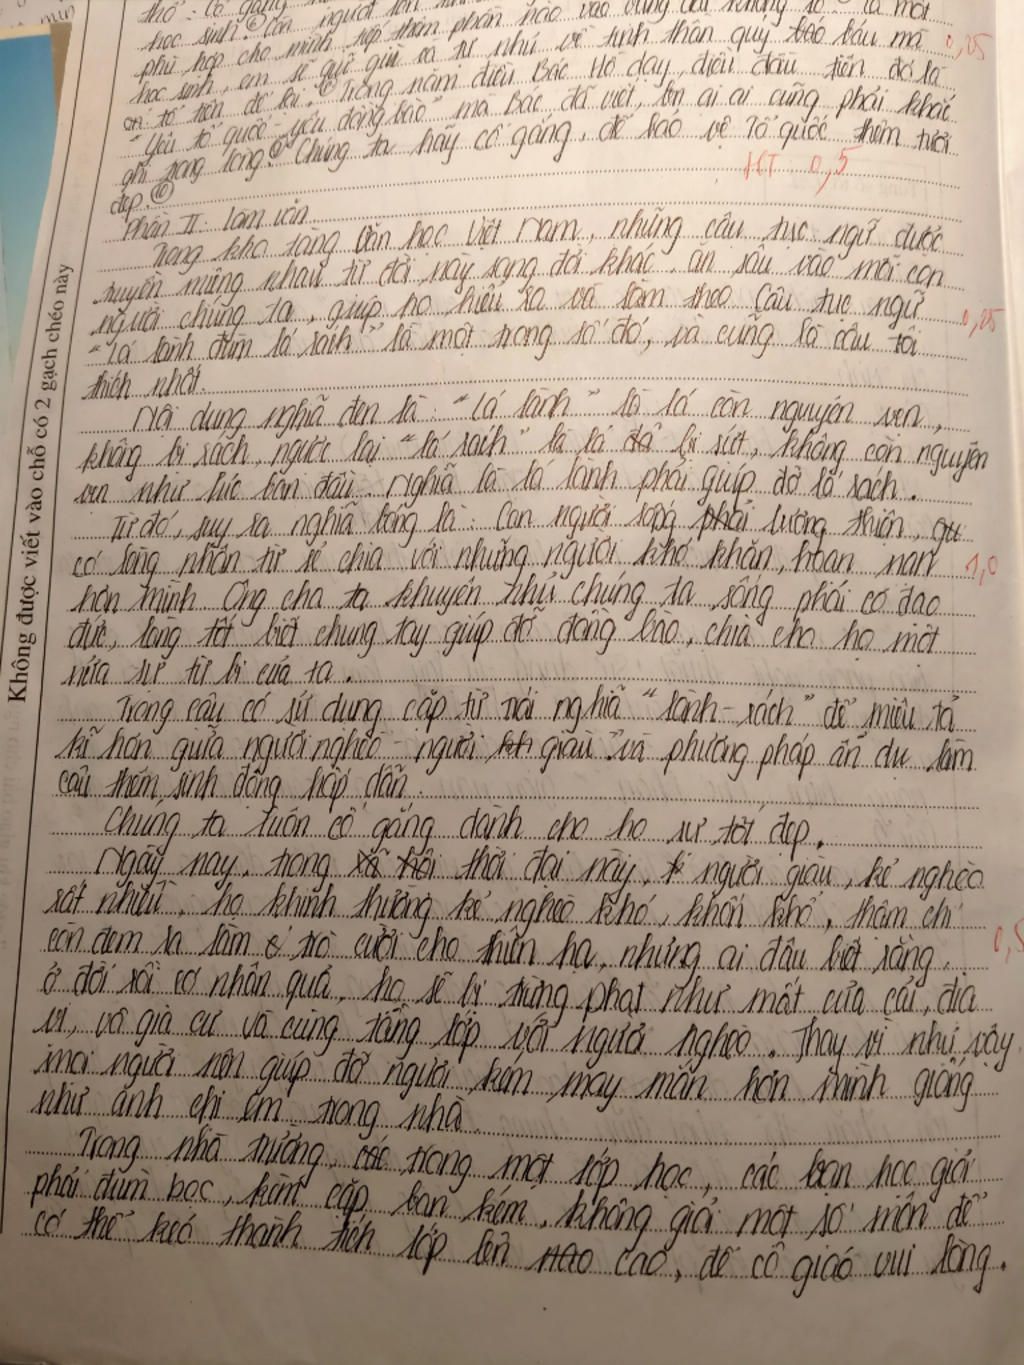 học sinh. Con người
phù hợp cho mình tiếp thêm phần nào vào
học sinh, em sẽ giữ gìn và tư như về tinh thần quý báu mà 0,25
tổ tiên để lại. Trong năm điều Bác Hồ dạy, điều đầu tiên đó là
"yêu tổ quốc - yêu đồng bào" mà Bác đã viết, ai ai cũng phải khắc
ghi trong lòng. Chúng ta hãy cố gắng, để bảo vệ Tổ quốc thêm tươi
đẹp. ⑩
HT 0,5
Phần II: Làm văn
Trong kho tàng Văn học Việt Nam, những câu tục ngữ được
truyền miệng nhau từ đời này sang đời khác, ăn sâu vào mỗi con
người chúng ta, giúp họ hiểu ra và làm theo. Câu tục ngữ 0,25
"Lá lành đùm lá rách" là một trong số đó, và cũng là câu tôi
thích nhất.
Nội dung nghĩa đen là: "Lá lành" là lá còn nguyên vẹn,
không bị rách, ngược lại "lá rách" là lá đã bị sứt, không còn nguyên
vẹn như lúc ban đầu. Nghĩa là lá lành phải giúp đỡ lá rách.
Từ đó, suy ra nghĩa bóng là: Con người sống phải lương thiện,
có lòng nhân từ sẻ chia với những người khó khăn, hoạn nạn 1,0
hơn mình. Ông cha ta khuyên nhủ chúng ta sống phải có đạo
đức, lòng tốt biết chung tay giúp đỡ đồng bào, chia cho họ một
nửa sự từ bi của ta.
Trong câu có sử dụng cặp từ trái nghĩa "lành - rách" để miêu tả
kĩ hơn giữa người nghèo - người giàu và phương pháp ẩn dụ làm
câu thêm sinh động hấp dẫn.
Chúng ta luôn cố gắng dành cho họ sự tốt đẹp.
Ngày nay, trong thời đại này, người giàu, kẻ nghèo
rất nhiều, họ khinh thường kẻ nghèo khó, khốn khổ, thậm chí
còn đem ra làm trò cười cho thiên hạ, nhưng ai đâu biết rằng, 0,5
ở đời rồi có nhân quả, họ sẽ bị trừng phạt như mất của cải, địa
vị, vô gia cư và cùng tầng lớp với người nghèo. Thay vì như vậy
mọi người nên giúp đỡ người kém may mắn hơn mình giống
như anh chị em trong nhà.
Trong nhà trường, trong một lớp học, các bạn học giỏi
phải đùm bọc, kèm cặp bạn kém, không giỏi một số môn để
có thể kéo thành tích lớp lên cao, để cô giáo vui lòng.
Không được viết vào chỗ có 2 gạch chéo này